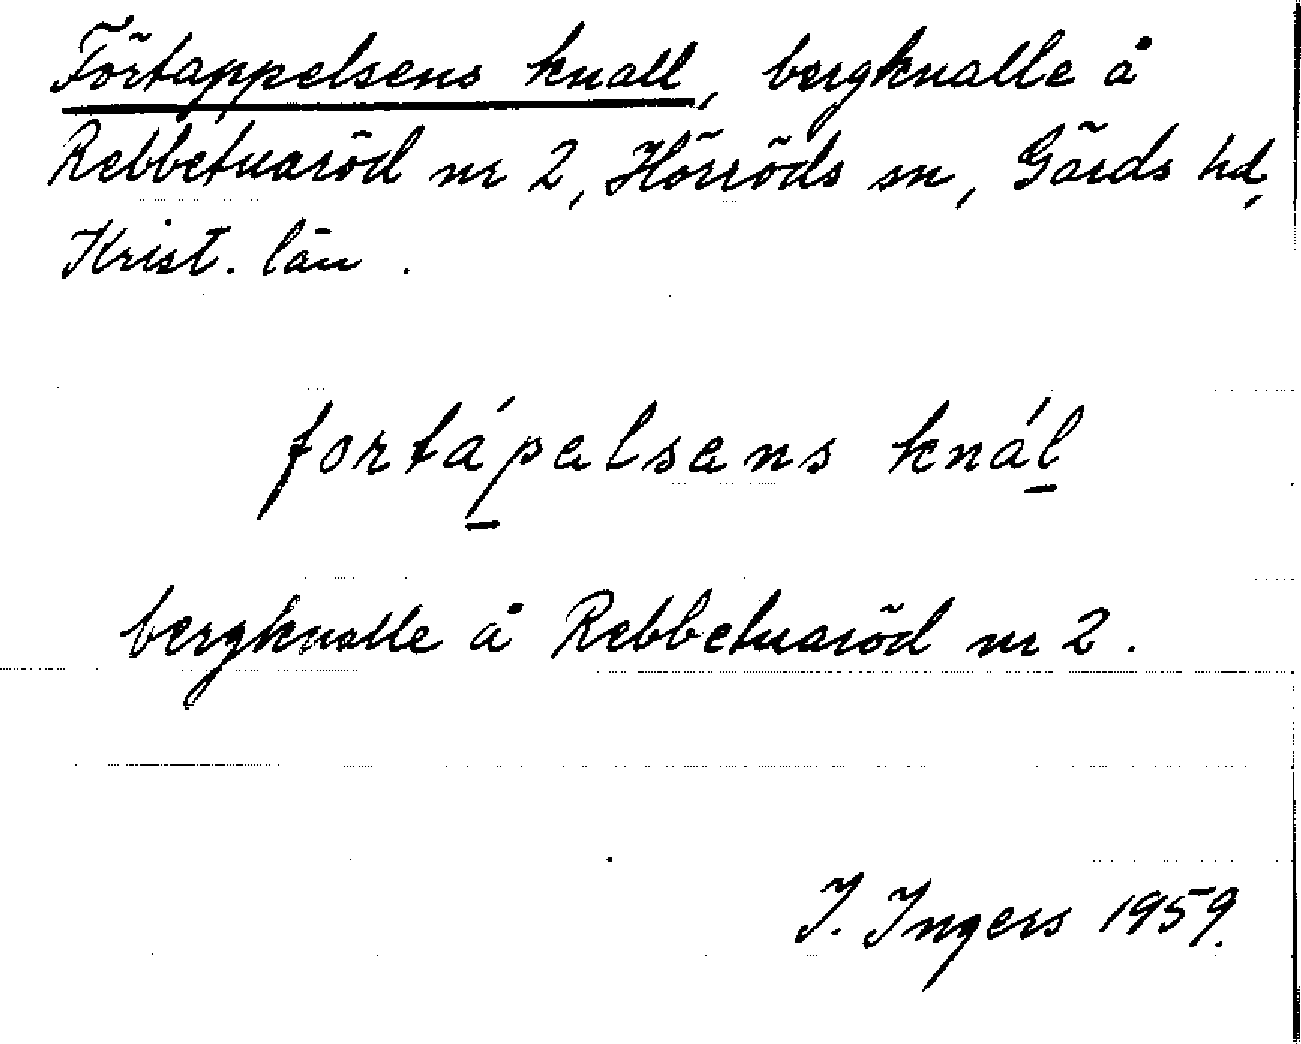 Förtappelsens knall, bergknalle å
Rebbetuaröd nr 2, Hörröds sn, Gärds hd,
Krist. län.
fortápelsens knál
bergknalle å Rebbetuaröd nr 2.
I. Ingers 1959.